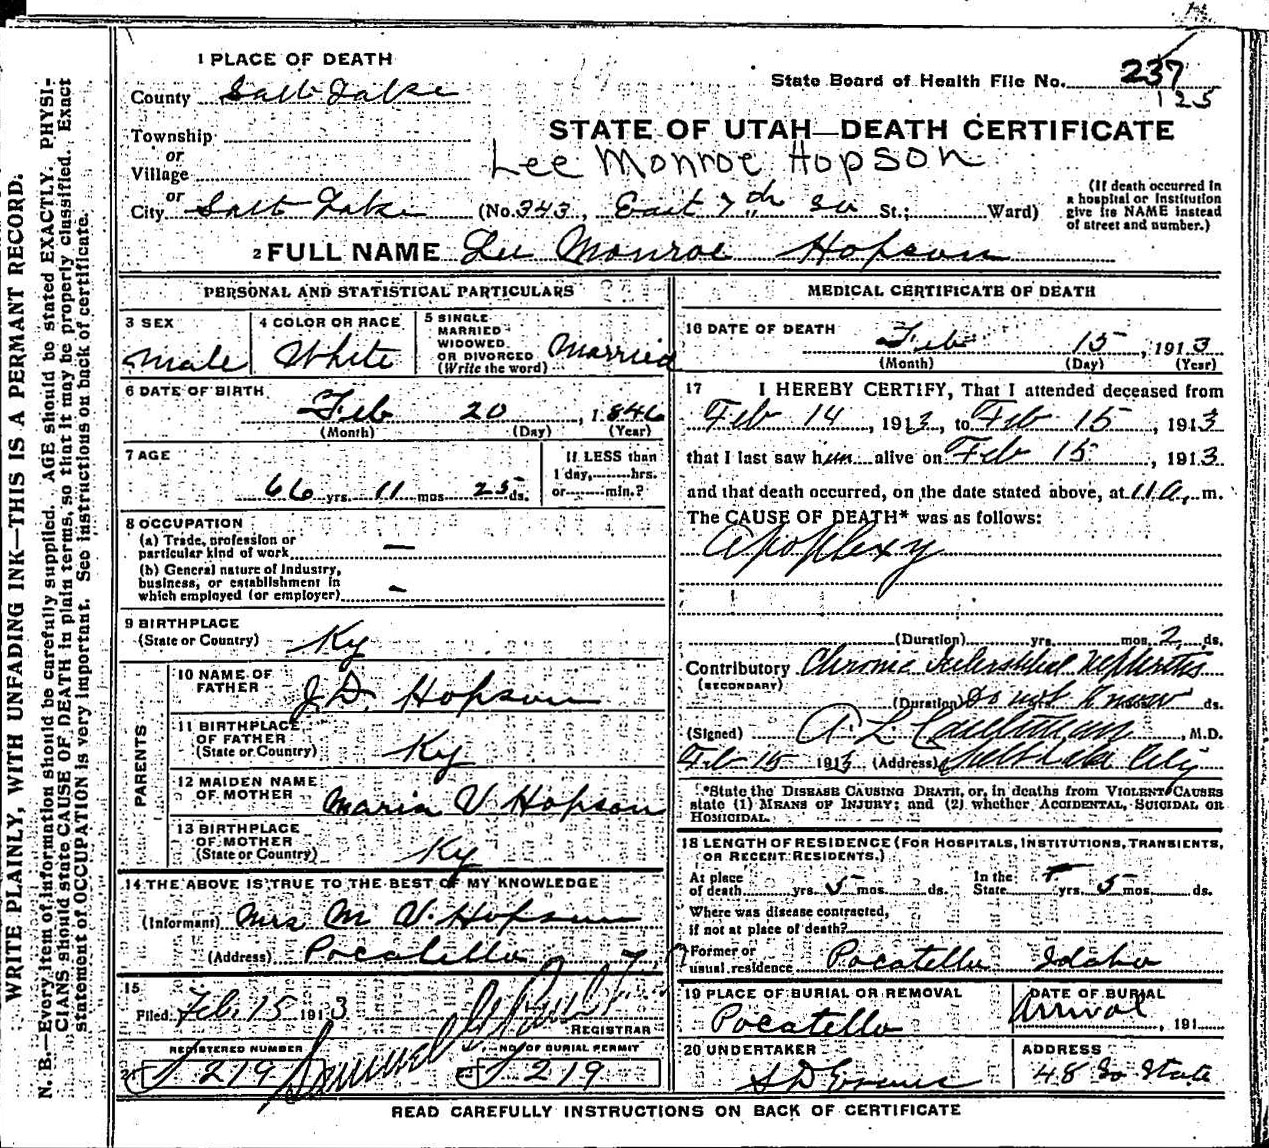 1 PLACE OF DEATH
County Salt Lake
State Board of Health File No. 237
125
Township
or
Village
or
STATE OF UTAH—DEATH CERTIFICATE
Lee Monroe Hopson
City Salt Lake (No. 343, East 7th So St.; Ward)
(If death occurred in a hospital or institution give its NAME instead of street and number.)
2 FULL NAME Lee Monroe Hopson
PERSONAL AND STATISTICAL PARTICULARS
3 SEX
Male
4 COLOR OR RACE
White
5 SINGLE
MARRIED
WIDOWED
OR DIVORCED
(Write the word)
Married
6 DATE OF BIRTH
Feb 20, 1846
(Month) (Day) (Year)
7 AGE
66 yrs. 11 mos 25 ds.
If LESS than
1 day, hrs.
or min.?
8 OCCUPATION
(a) Trade, profession or
particular kind of work —
(b) General nature of Industry,
business, or establishment in
which employed (or employer) -
9 BIRTHPLACE
(State or Country) Ky
PARENTS
10 NAME OF
FATHER J.D. Hopson
11 BIRTHPLACE
OF FATHER
(State or Country) Ky
12 MAIDEN NAME
OF MOTHER Maria V Hopson
13 BIRTHPLACE
OF MOTHER
(State or Country) Ky
14 THE ABOVE IS TRUE TO THE BEST OF MY KNOWLEDGE
(Informant) Mrs M V. Hopson
(Address) Pocatello
15
Filed Feb. 15 1913
REGISTRAR
REGISTERED NUMBER
219
Samuel
NO. OF BURIAL PERMIT
219
MEDICAL CERTIFICATE OF DEATH
16 DATE OF DEATH
Feb 15, 1913
(Month) (Day) (Year)
17 I HEREBY CERTIFY, That I attended deceased from
Feb 14, 1913, to Feb 15, 1913
that I last saw him alive on Feb 15, 1913
and that death occurred, on the date stated above, at 11 a. m.
The CAUSE OF DEATH* was as follows:
Apoplexy
(Duration) yrs. mos. 2 ds.
Contributory Chronic Interstitial Nephritis
(SECONDARY)
(Duration) Do not know ds.
(Signed) M.D.
Feb 15 1913 (Address) Salt Lake City
*State the DISEASE CAUSING DEATH, or, in deaths from VIOLENT CAUSES
state (1) MEANS OF INJURY; and (2) whether ACCIDENTAL, SUICIDAL OR
HOMICIDAL.
18 LENGTH OF RESIDENCE (FOR HOSPITALS, INSTITUTIONS, TRANSIENTS,
OR RECENT RESIDENTS.)
At place
of death yrs. 5 mos. ds. In the State yrs. 5 mos. ds.
Where was disease contracted,
if not at place of death?
Former or
usual residence Pocatello Idaho
19 PLACE OF BURIAL OR REMOVAL
Pocatello
DATE OF BURIAL
Arrival, 191
20 UNDERTAKER
S D Evans
ADDRESS
48 So State
READ CAREFULLY INSTRUCTIONS ON BACK OF CERTIFICATE
WRITE PLAINLY, WITH UNFADING INK—THIS IS A PERMANT RECORD.
N. B.—Every item of information should be carefully supplied. AGE should be stated EXACTLY. PHYSI-
CIANS should state CAUSE OF DEATH in plain terms, so that it may be properly classified. Exact
statement of OCCUPATION is very important. See instructions on back of certificate.